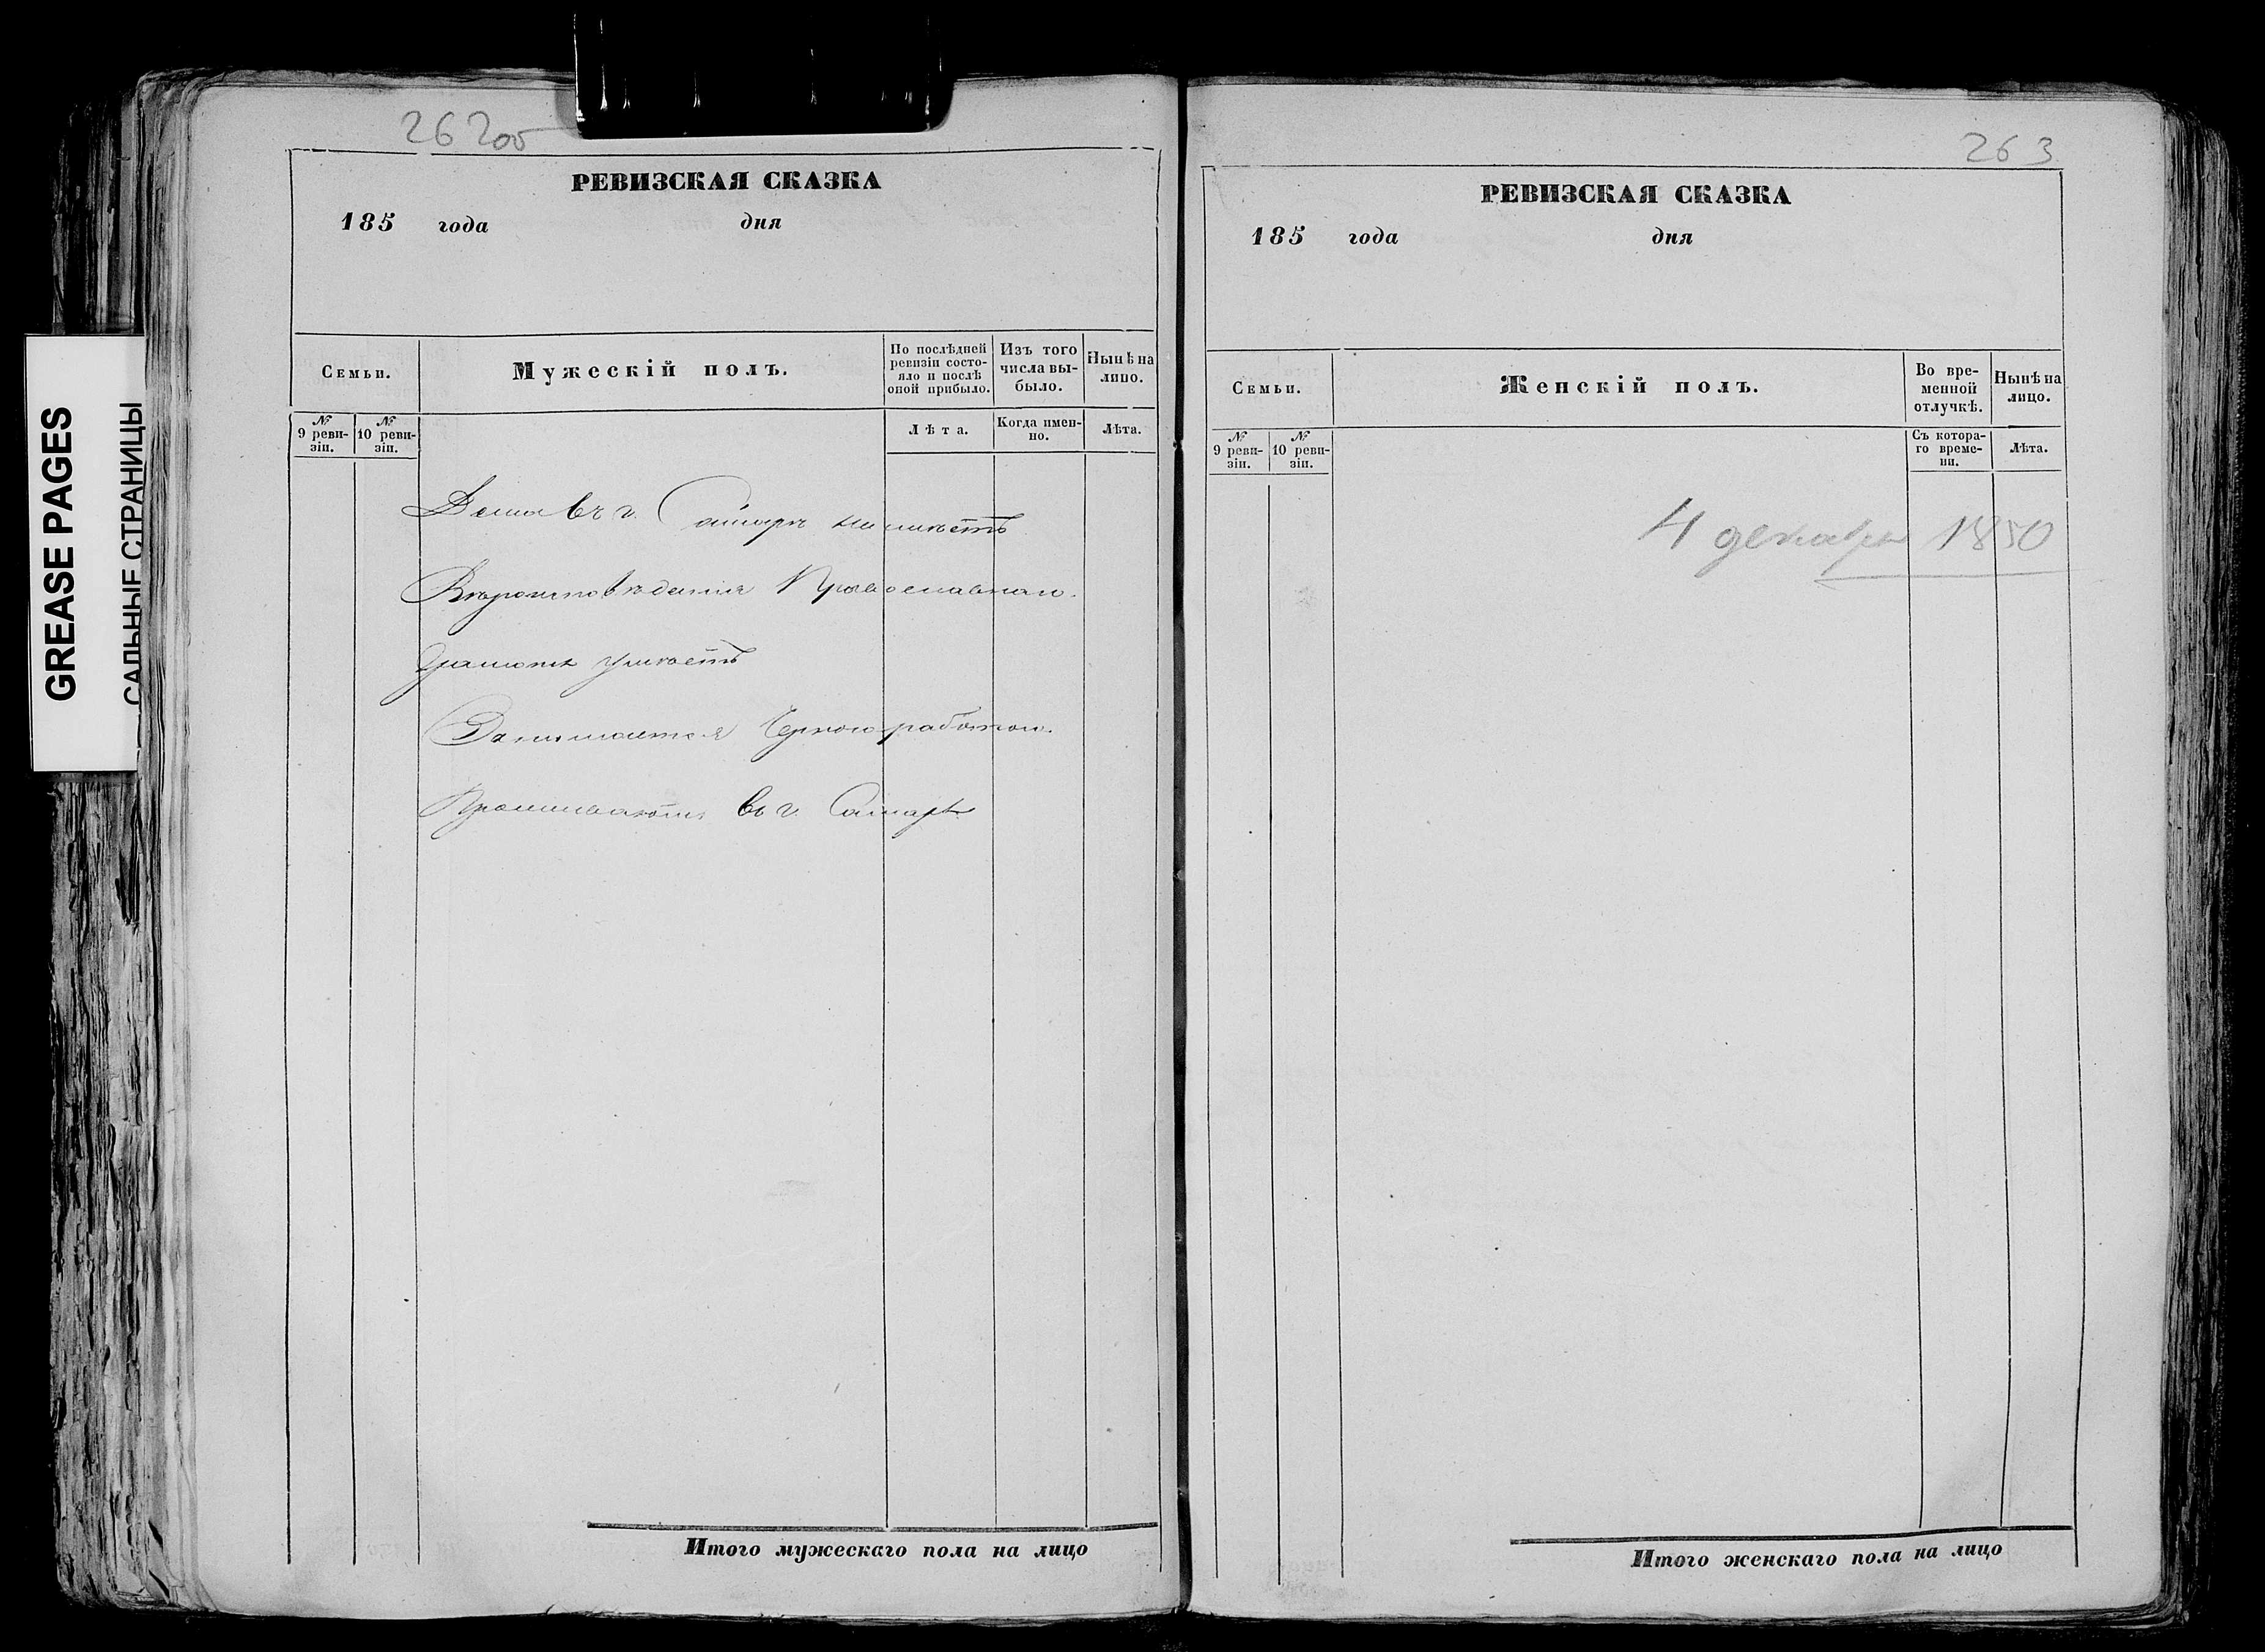 GREASE PAGES
САЛЬНЫЕ СТРАНИЦЫ
262об
РЕВИЗСКАЯ СКАЗКА
185 года дня
Семьи.
Мужескій полъ.
По послѣдней ревизіи состо-
яло и послѣ
оной прибыло.
Изъ того
числа вы-
было.
Нынѣ на
лицо.
№
9 реви-
зіи.
№
10 реви-
зіи.
Лѣта.
Когда имен-
но.
Лѣта.
Дома въ г. Самарѣ не имѣетъ
Вѣроисповѣданія Православнаго.
Грамотѣ умѣетъ
Занимается Черною работою.
Проживаютъ въ г. Самарѣ
Итого мужескаго пола на лицо
263
РЕВИЗСКАЯ СКАЗКА
185 года дня
Семьи.
Женскій полъ.
Во вре-
менной
отлучкѣ.
Нынѣ на
лицо.
№
9 реви-
зіи.
№
10 реви-
зіи.
Съ котора-
го време-
ни.
Лѣта.
4 декабря 1850
Итого женскаго пола на лицо